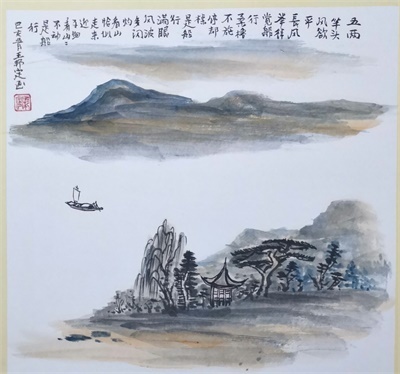 五两
竿头
风欲
平
長风
举棹
觉船
行
柔橹
不施
停却
棹
是船
行
满眼
风波
多闪
灼
看山
恰似
走来
迎
子细
看山山
不动
是船
行
己亥